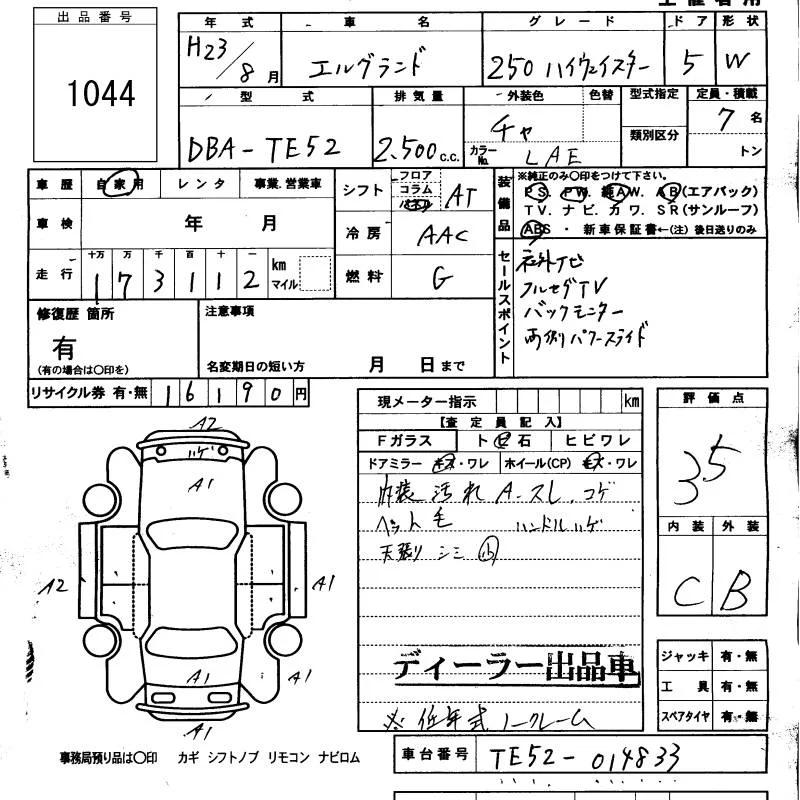 出品番号
1044
年式 車名 グレード ドア 形状
H23/8月 エルグランド 250 ハイウェイスター 5 W
型式 排気量 外装色 色替 型式指定 定員・積載
DBA-TE52 2.500 c.c. チャ 類別区分 7名
カラーNo. LAE トン
車歴 自家用 レンタ 事業.営業車
車検 年 月
走行 十万 万 千 百 十 一
1 7 3 1 1 2 km マイル
シフト フロア コラム AT
冷房 AAC
燃料 G
装備品 ※純正のみ〇印をつけて下さい。
PS. PW. 純AW. AB(エアバック)
TV. ナビ. カワ. SR(サンルーフ)
ABS ・ 新車保証書←(注)後日送りのみ
セールスポイント
社外ナビ
フルセグTV
バックモニター
両側パワースライド
修復歴 箇所
有
(有の場合は〇印を)
注意事項
名変期日の短い方 月 日まで
リサイクル券 有・無 16190円
現メーター指示 km
【査定員記入】
Fガラス トビ石 ヒビワレ
ドアミラー キズ・ワレ ホイール(CP) キズ・ワレ
内装 汚れ A.スレ.コゲ
ペット毛 ハンドルハゲ
天張り シミ 小
ディーラー出品車
※ 低年式 ノークレーム
評価点
3.5
内装 外装
C B
ジャッキ 有・無
工具 有・無
スペアタイヤ 有・無
車台番号 TE52-014833
A2
ハゲ
A1
A2
A1
A1
A1
A1
事務局預り品は〇印 カギ シフトノブ リモコン ナビロム